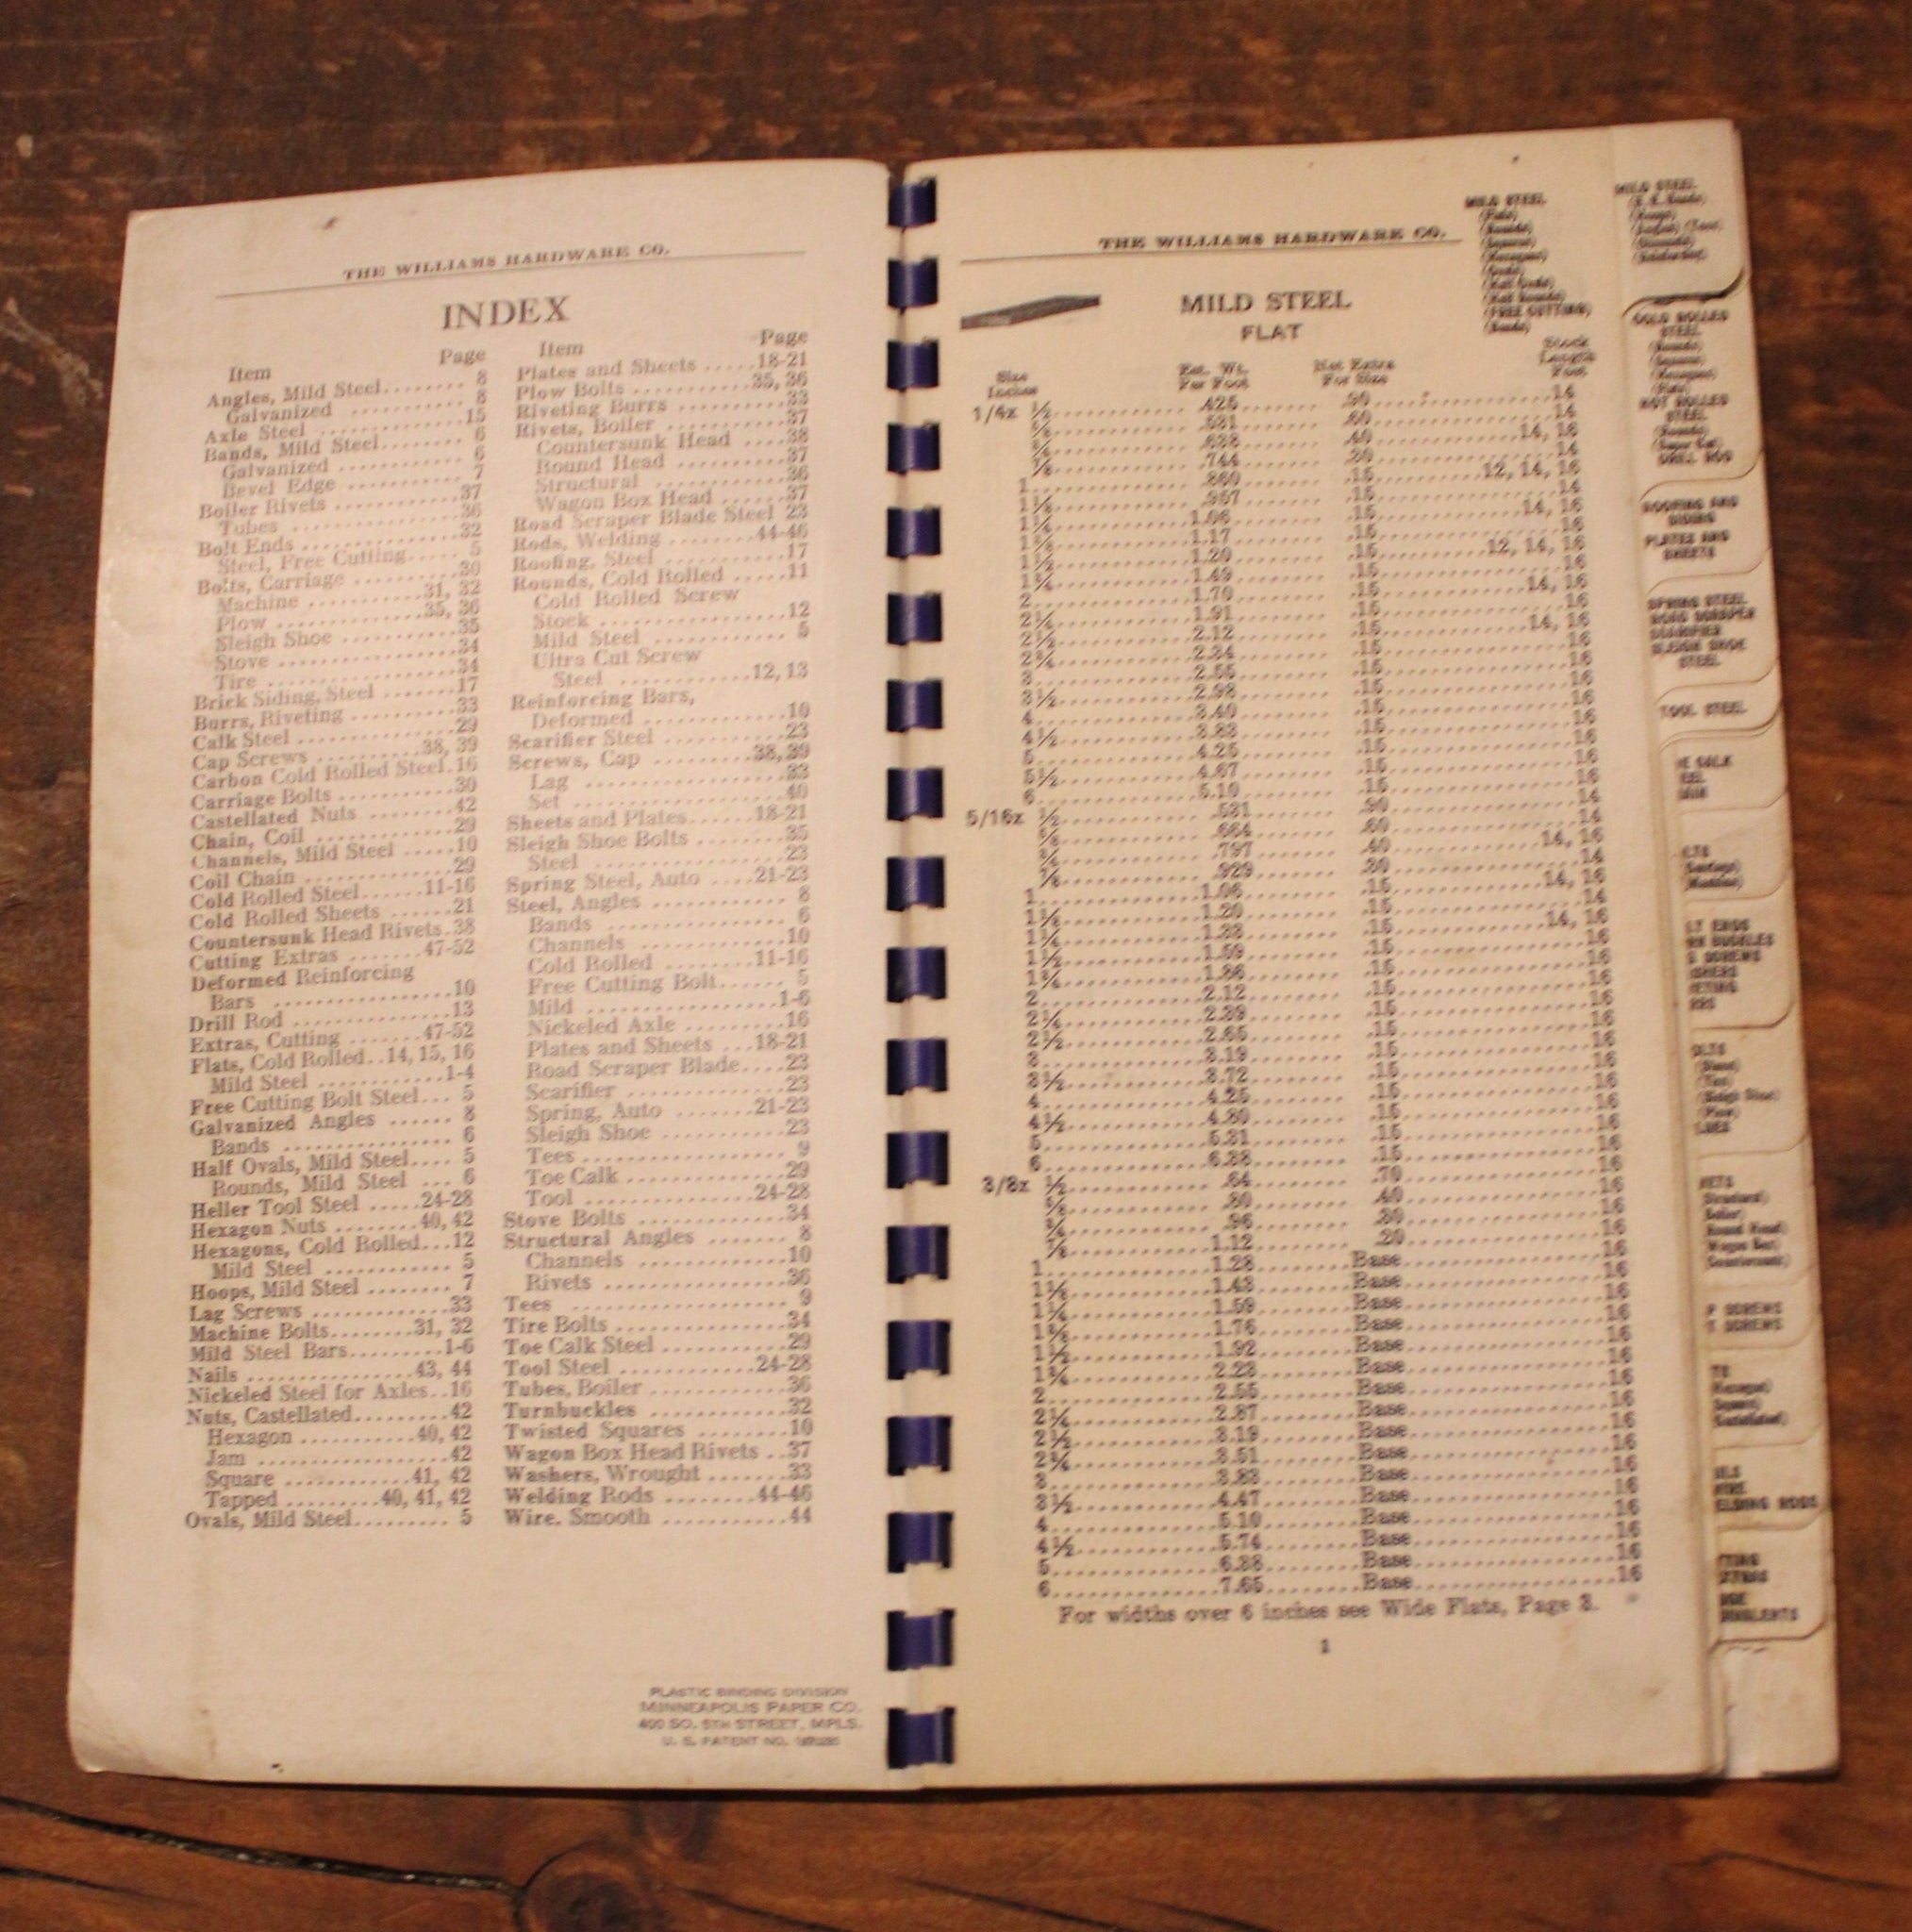 THE WILLIAMS HARDWARE CO.
INDEX
Item Page
Angles, Mild Steel........ 8
Galvanized .......... 8
Axle Steel ..............15
Bands, Mild Steel........ 6
Galvanized ........... 6
Bevel Edge ........... 7
Boiler Rivets ...........37
Tubes ...............36
Bolt Ends ...............32
Steel, Free Cutting..... 5
Bolts, Carriage .........30
Machine ...........31, 32
Plow ...............35, 36
Sleigh Shoe ...........35
Stove .................34
Tire ..................34
Brick Siding, Steel .......17
Burrs, Riveting ..........33
Calk Steel ...............29
Cap Screws ..........38, 39
Carbon Cold Rolled Steel.16
Carriage Bolts ...........30
Castellated Nuts ........42
Chain, Coil .............29
Channels, Mild Steel .....10
Coil Chain ..............29
Cold Rolled Steel......11-16
Cold Rolled Sheets .......21
Countersunk Head Rivets.38
Cutting Extras .......47-52
Deformed Reinforcing
Bars .................10
Drill Rod ...............13
Extras, Cutting .......47-52
Flats, Cold Rolled..14, 15, 16
Mild Steel ............1-4
Free Cutting Bolt Steel... 5
Galvanized Angles ...... 8
Bands ............... 6
Half Ovals, Mild Steel.... 5
Rounds, Mild Steel .... 6
Heller Tool Steel .....24-28
Hexagon Nuts ........40, 42
Hexagons, Cold Rolled...12
Mild Steel ............ 5
Hoops, Mild Steel ........ 7
Lag Screws .............33
Machine Bolts........31, 32
Mild Steel Bars.........1-6
Nails ...............43, 44
Nickeled Steel for Axles..16
Nuts, Castellated.........42
Hexagon ...........40, 42
Jam ..................42
Square ............41, 42
Tapped .........40, 41, 42
Ovals, Mild Steel......... 5
Item Page
Plates and Sheets .....18-21
Plow Bolts ...........35, 36
Riveting Burrs ..........33
Rivets, Boiler ...........37
Countersunk Head ....38
Round Head ..........37
Structural ............36
Wagon Box Head ......37
Road Scraper Blade Steel 23
Rods, Welding ........44-46
Roofing, Steel ...........17
Rounds, Cold Rolled .....11
Cold Rolled Screw
Stock ................12
Mild Steel ............ 5
Ultra Cut Screw
Steel ............12, 13
Reinforcing Bars,
Deformed .............10
Scarifier Steel ...........23
Screws, Cap .........38, 39
Lag ..................33
Set ..................40
Sheets and Plates......18-21
Sleigh Shoe Bolts ........35
Steel .................23
Spring Steel, Auto ....21-23
Steel, Angles ............ 8
Bands ................ 6
Channels .............10
Cold Rolled ........11-16
Free Cutting Bolt...... 5
Mild .................1-6
Nickeled Axle .........16
Plates and Sheets ...18-21
Road Scraper Blade....23
Scarifier ..............23
Spring, Auto .......21-23
Sleigh Shoe ...........23
Tees .................. 9
Toe Calk ..............29
Tool ...............24-28
Stove Bolts .............34
Structural Angles ....... 8
Channels .............10
Rivets ...............36
Tees ................... 9
Tire Bolts ..............34
Toe Calk Steel ..........29
Tool Steel ............24-28
Tubes, Boiler ...........36
Turnbuckles ............32
Twisted Squares ........10
Wagon Box Head Rivets ..37
Washers, Wrought .......33
Welding Rods ........44-46
Wire. Smooth ...........44
PLASTIC BINDING DIVISION
MINNEAPOLIS PAPER CO.
400 SO. 5TH STREET, MPLS.
U. S. PATENT NO.
THE WILLIAMS HARDWARE CO.
MILD STEEL
FLAT
Size Inches Est. Wt. Per Foot Net Extra Per Size Stock Length Feet
1/4x ½ .425 .90 14
⅝ .531 .60 14
¾ .638 .40 14, 16
⅞ .744 .30 14
1 .850 .15 12, 14, 16
1⅛ .957 .15 14
1¼ 1.06 .15 14, 16
1⅜ 1.17 .15 16
1½ .15 12, 14, 16
1¾ 1.49 .15 16
2 1.70 .15 14, 16
2¼ 1.91 .15 16
2½ 2.12 .15 14, 16
2¾ 2.34 .15 16
3 2.55 .15 16
3½ 2.98 .15 16
4 3.40 .15 16
4½ 3.83 .15 16
5 4.25 .15 16
5½ 4.67 .15 16
6 5.10 .15 16
5/16x ½ .531 .90 14
⅝ .664 .60 14
¾ .797 .40 14, 16
⅞ .929 .30 14
1 1.06 .15 14, 16
1⅛ 1.20 .15 14
1¼ 1.33 .15 14, 16
1½ 1.59 .15 16
1¾ 1.86 .15 16
2 2.12 .15 16
2¼ 2.39 .15 16
2½ 2.65 .15 16
3 3.19 .15 16
3½ 3.72 .15 16
4 4.25 .15 16
4½ 4.80 .15 16
5 5.31 .15 16
6 6.38 .15 16
3/8x ½ .64 .70 16
⅝ .80 .40 16
¾ .96 .30 16
⅞ 1.12 .20 16
1 1.28 Base 16
1⅛ 1.43 Base 16
1¼ 1.59 Base 16
1⅜ 1.76 Base 16
1½ 1.92 Base 16
1¾ 2.23 Base 16
2 2.55 Base 16
2¼ 2.87 Base 16
2½ 3.19 Base 16
2¾ 3.51 Base 16
3 3.83 Base 16
3½ 4.47 Base 16
4 5.10 Base 16
4½ 5.74 Base 16
5 6.38 Base 16
6 7.65 Base 16
For widths over 6 inches see Wide Flats, Page 3.
1
MILD STEEL
(FREE CUTTING)
MILD STEEL
COLD ROLLED
STEEL
HOT ROLLED
STEEL
DRILL ROD
ROOFING AND
SIDING
PLATES AND
SHEETS
SPRING STEEL
ROAD SCRAPER
SCARIFIER
SLEIGH SHOE
STEEL
TOOL STEEL
P SCREWS
T SCREWS